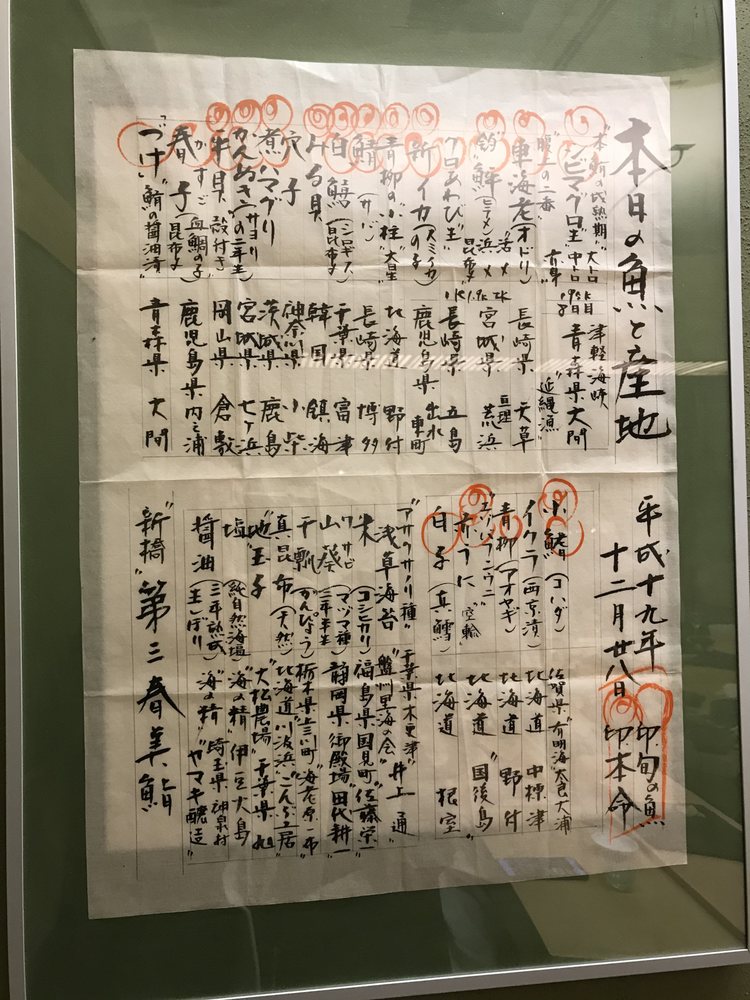 本日の魚と産地
平成十九年
十二月廿八日
印旬の魚
印本命
"本鮪の成熟期"
シビマグロ 大トロ 中トロ
津軽海峡
青森県 大間
"腹上の二番"
"延縄漁"
車海老(オドリ) 長崎県 天草
"釣"鮃(ヒラメ) 昆布〆 宮城県 亘理 荒浜
クロあわび 長崎県 五島
新イカ(スミイカの子) 鹿児島県 出水 東町
青柳の小柱"大星" 北海道 野付
鯖(サバ) 長崎県 博多
白鱚(シロギス)(昆布〆) 千葉県 富津
みる貝 韓国 鎮海
穴子 神奈川県 小柴
煮ハマグリ 茨城県 鹿島
かんぬき(サヨリ)の二年生 宮城県 七ヶ浜
平貝 殻付き 岡山県 倉敷
春子(昆布〆) かすご(血鯛の子) 鹿児島県 内之浦
"づけ"鮪の醤油漬 青森県 大間
小鰭(コハダ) 佐賀県"有明海"太良 大浦
イクラ(西京漬) 北海道 中標津
青柳(アオヤギ) 北海道 野付
"エゾバフンウニ"
赤うに"空輸" 北海道"国後島"
白子(真鱈) 北海道 根室
"アサクサノリ種"
浅草海苔 千葉県木更津
"盤洲里海の会" 井上 通
米(コシヒカリ) 福島県国見町"佐藤栄一"
ワサビ
山葵(マヅマ種)三年半生 静岡県御殿場"田代耕一"
干瓢(かんぴょう) 栃木県上三川町"海老原一市"
真昆布(天然) 北海道川汲浜"こんぶ居"
"地"玉子 "大松農場"千葉県 旭
塩(純自然海塩) "海の精"伊豆大島
醤油(三年熟成)(生しぼり) "海の精"埼玉県神泉村"ヤマキ醸造"
"新橋"第三春美鮨